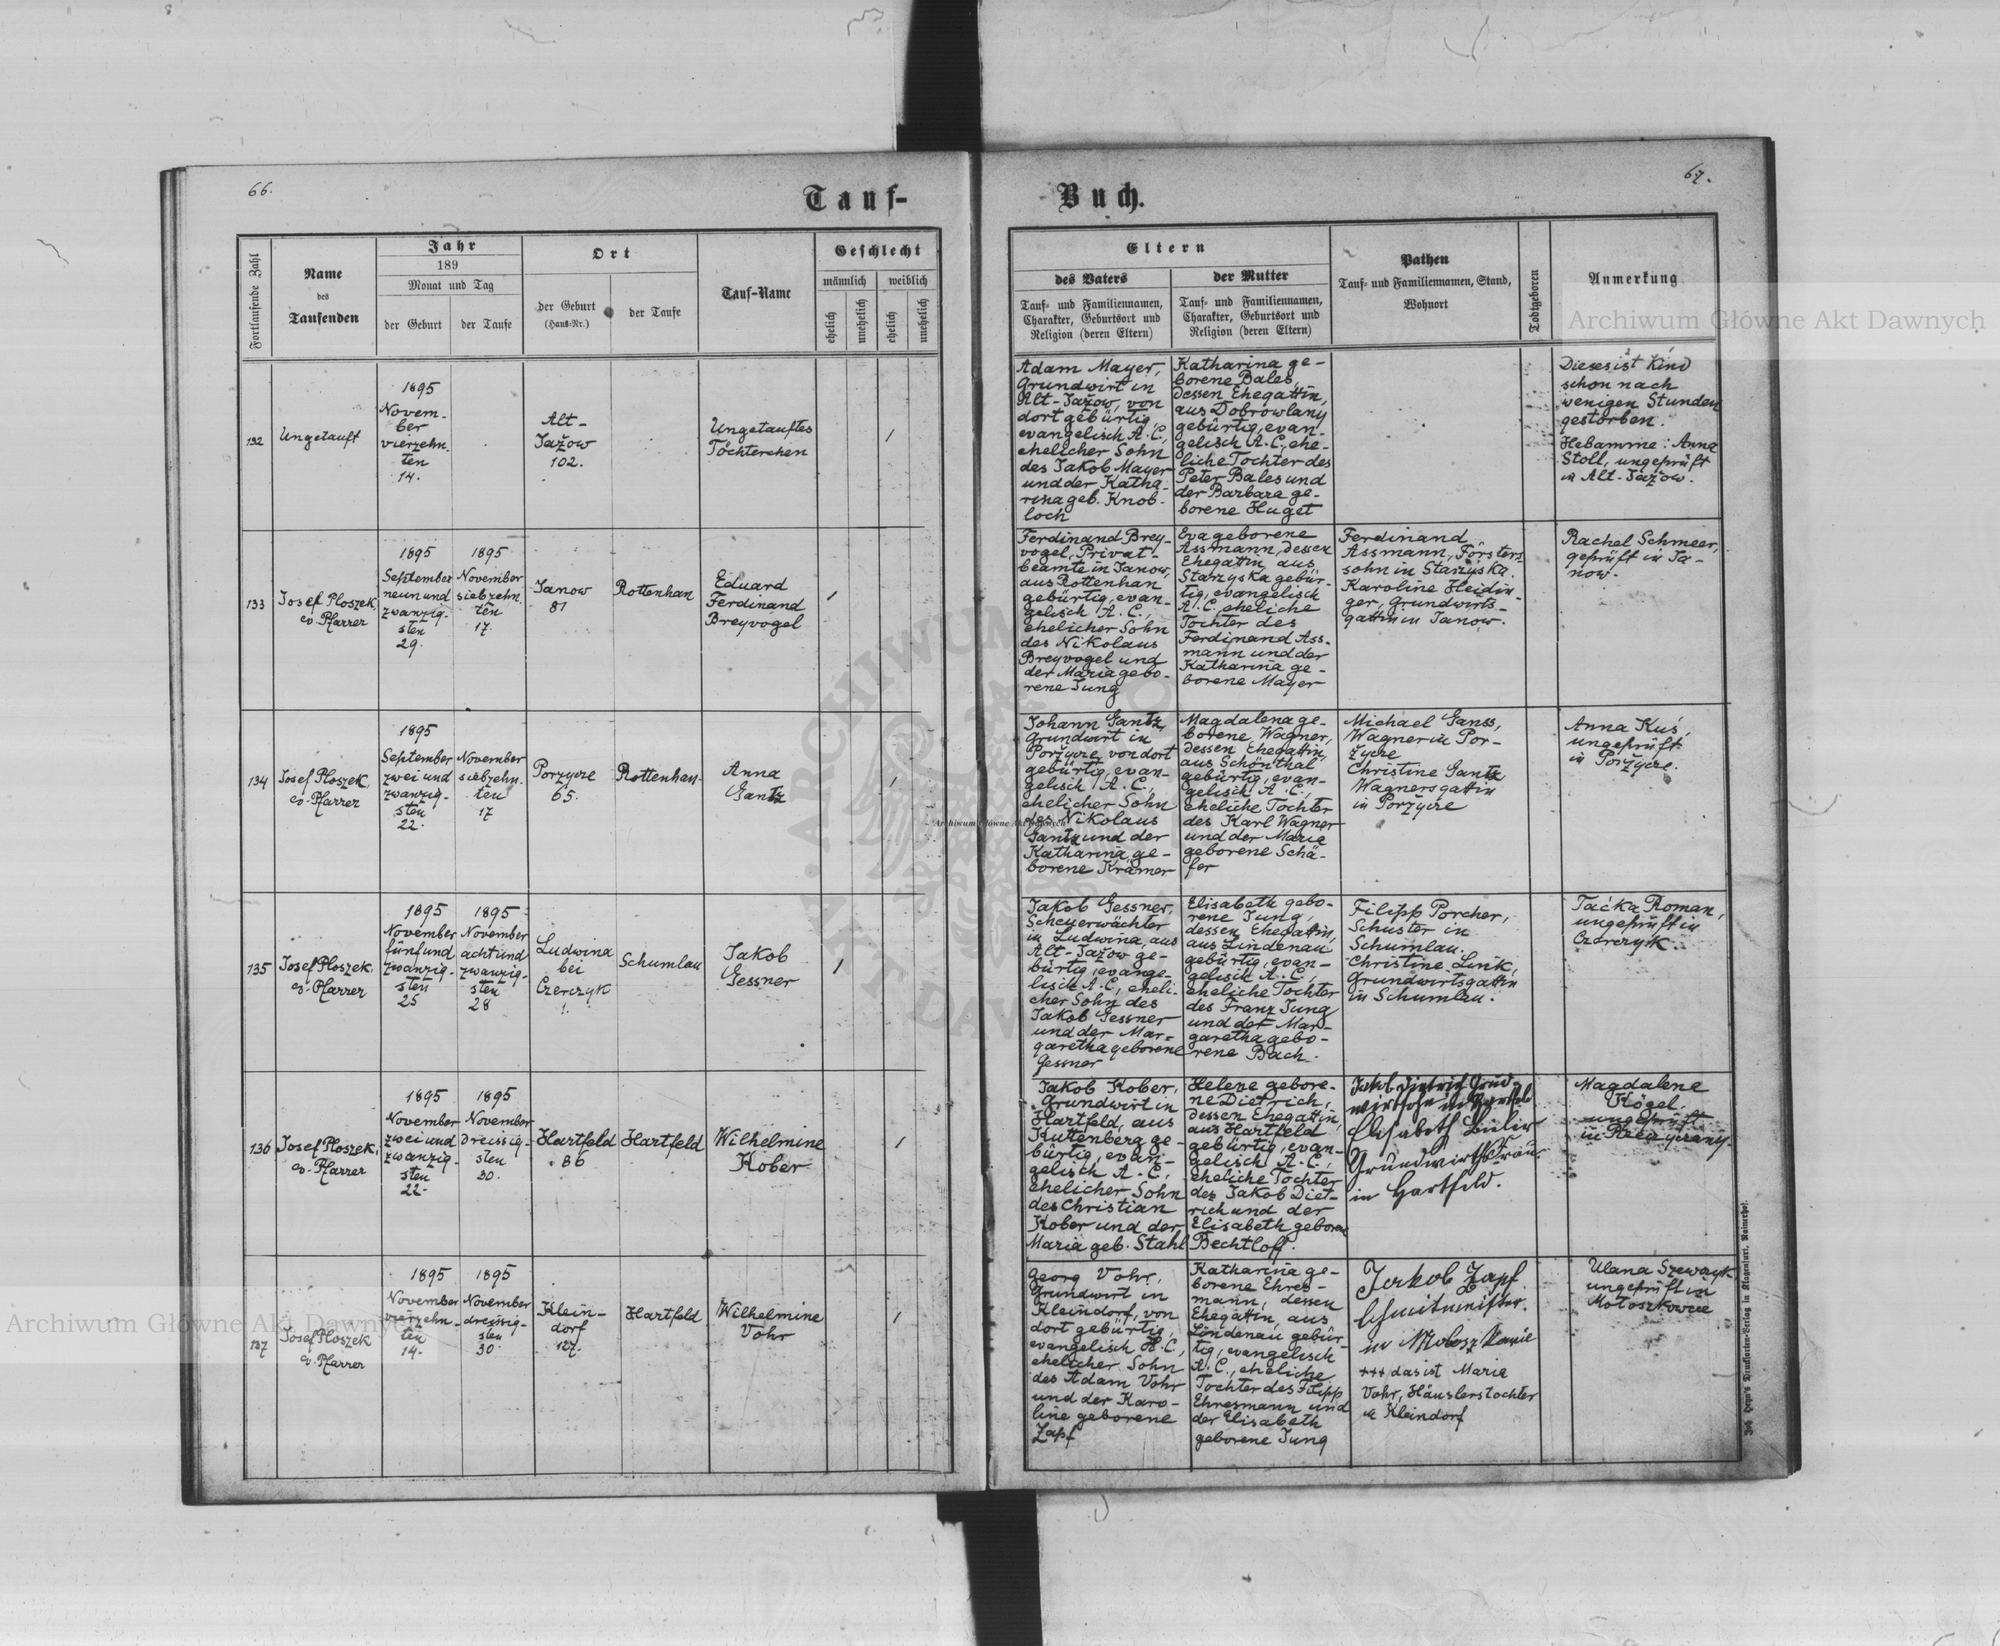 66.
67.
Tauf-
Buch.
Fortlaufende Zahl
Name
des
Taufenden
Jahr
189
Monat und Tag
der Geburt
der Taufe
Ort
der Geburt
(Haus-Nr.)
der Taufe
Tauf-Name
Geschlecht
männlich
weiblich
ehelich
unehelich
ehelich
unehelich
Eltern
des Vaters
Tauf- und Familiennamen,
Charakter, Geburtsort und
Religion (deren Eltern)
der Mutter
Tauf- und Familiennamen,
Charakter, Geburtsort und
Religion (deren Eltern)
Pathen
Tauf- und Familiennamen, Stand,
Wohnort
Todtgeboren
Anmerkung
Archiwum Główne Akt Dawnych
132
Ungetauft
1895
Novem-
ber
vierzehn-
ten
14.
Alt-
Jažow
102.
Ungetauftes
Töchterchen
1
Adam Mayer,
Grundwirt in
Alt-Jažow, von
dort gebürtig,
evangelisch A.C.,
ehelicher Sohn
des Jakob Mayer
und der Katha-
rina geb. Knob-
loch
Katharina ge-
borene Bales,
dessen Ehegattin,
aus Dobrowlany
gebürtig, evan-
gelisch A.C., ehe-
liche Tochter des
Peter Bales und
der Barbara ge-
borene Huget
Dieses ist Kind
schon nach
wenigen Stunden
gestorben.
Hebamme: Anna
Stoll, ungeprüft
in Alt-Jažow.
133
Josef Ploszek,
ev. Pfarrer
1895
September
neun und
zwanzig-
sten
29.
1895
November
siebzehn-
ten
17.
Janow
81
Rottenhan
Eduard
Ferdinand
Breyvogel
1
Ferdinand Brey-
vogel, Privat-
beamte in Janow,
aus Rottenhan
gebürtig, evan-
gelisch A.C.,
ehelicher Sohn
des Nikolaus
Breyvogel und
der Maria gebo-
rene Jung
Eva geborene
Assmann, dessen
Ehegattin, aus
Starzyska gebür-
tig, evangelisch
A.C., eheliche
Tochter des
Ferdinand Ass-
mann und der
Katharina ge-
borene Mayer
Ferdinand
Assmann, Försters-
sohn in Starzyska.
Karoline Heidin-
ger, Grundwirts-
gattin in Janow.
Rachel Schmeer,
geprüft in Ja-
now.
134
Josef Ploszek,
ev. Pfarrer
1895
September
zwei und
zwanzig-
sten
22.
November
siebzehn-
ten
17
Porzycze
65.
Rottenhan
Anna
Gantz
1
Johann Gantz
Grundwirt in
Poržycze, von dort
gebürtig, evan-
gelisch A.C.,
ehelicher Sohn
des Nikolaus
Gantz und der
Katharina ge-
borene Krämer
Magdalena ge-
borene Wagner,
dessen Ehegattin,
aus Schönthal
gebürtig, evan-
gelisch A.C.,
eheliche Tochter
des Karl Wagner
und der Maria
geborene Schä-
fer
Michael Ganss,
Wagner in Por-
życze
Christine Gantz
Wagnersgattin
in Poržycze
Anna Kuś,
ungeprüft
in Poržycze.
Archiwum Główne Akt Dawnych
135
Josef Ploszek,
ev. Pfarrer
1895
November
fünf und
zwanzig-
sten
25
1895
November
acht und
zwanzig-
sten
28
Ludwina
bei
Czerczyk
1.
Schumlau
Jakob
Gessner
1
Jakob Gessner,
Scheuerwächter
in Ludwina, aus
Alt-Jažow ge-
bürtig, evange-
lisch A.C., eheli-
cher Sohn des
Jakob Gessner
und der Mar-
garetha geborene
Gessner
Elisabeth gebo-
rene Jung,
dessen Ehegattin,
aus Lindenau
gebürtig, evan-
gelisch A.C.,
eheliche Tochter
des Franz Jung
und der Mar-
garetha gebo-
rene Bach.
Filipp Porcher,
Schuster in
Schumlau.
Christine Link,
Grundwirtsgattin
in Schumlau.
Tacka Roman,
ungeprüft in
Czerczyk.
136
Josef Ploszek,
ev. Pfarrer
1895
November
zwei und
zwanzig-
sten
22.
1895
November
dreissig-
sten
30.
Hartfeld
86
Hartfeld
Wilhelmine
Kober
1
Jakob Kober,
Grundwirt in
Hartfeld, aus
Kuttenberg ge-
bürtig, evan-
gelisch A.C.,
ehelicher Sohn
des Christian
Kober und der
Maria geb. Stahl
Helene gebore-
ne Dietrich,
dessen Ehegattin,
aus Hartfeld
gebürtig, evan-
gelisch A.C.,
eheliche Tochter
des Jakob Diet-
rich und der
Elisabeth geborene
Bechtloff.
Jakob Dietrich Grund-
wirtsohn in Hartfeld
Elisabeth
Grundwirths
in Hartfeld.
Magdalena
Kögel,
ungeprüft
in
137
Josef Ploszek
ev. Pfarrer
1895
November
vierzehn-
ten
14.
1895
November
dreissig-
sten
30.
Klein-
dorf
127.
Hartfeld
Wilhelmine
Vohr
1
Georg Vohr,
Grundwirt in
Kleindorf, von
dort gebürtig,
evangelisch A.C.,
ehelicher Sohn
des Adam Vohr
und der Karo-
line geborene
Zapf
Katharina ge-
borene Ehres-
mann, dessen
Ehegattin, aus
Lindenau gebür-
tig, evangelisch
A.C., eheliche
Tochter des Filipp
Ehresmann und
der Elisabeth
geborene Jung
Jakob Zapf
in Moloszkowie
+++ das ist Maria
Vohr, Häuslerstochter
in Kleindorf
Ulana Szewczyk
ungeprüft in
Mołoszkowce
Joh. Heyn's Drucksorten-Verlag in Klagenfurt, Rainerhof.
Archiwum Główne Akt Dawnych